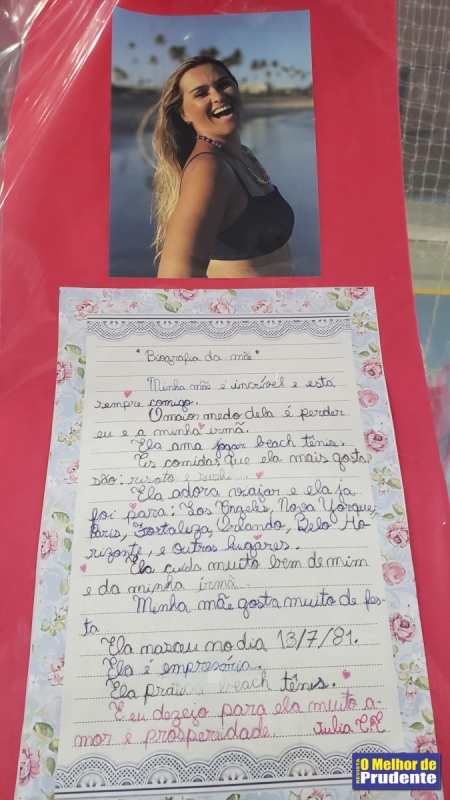 "Biografia da mãe"
Minha mãe é incrível e está
sempre comigo.
O maior medo dela é perder
eu e a minha irmã.
Ela ama jogar beach tênis.
As comidas que ela mais gosta
são: risoto e
Ela adora viajar e ela ja
foi para: Los Engeles, Nova Yorque,
Paris, Fortaleza, Orlando, Belo Ho-
rizonte, e outros lugares.
Ela cuida muito bem de mim
e da minha irmã.
Minha mãe gosta muito de fes-
ta
Ela nasceu no dia 13/7/81.
Ela é empresária.
Ela pratica beach tênis.
E eu dezejo para ela muito a-
mor e prosperidade. Julia
REVISTA
O Melhor de
Prudente